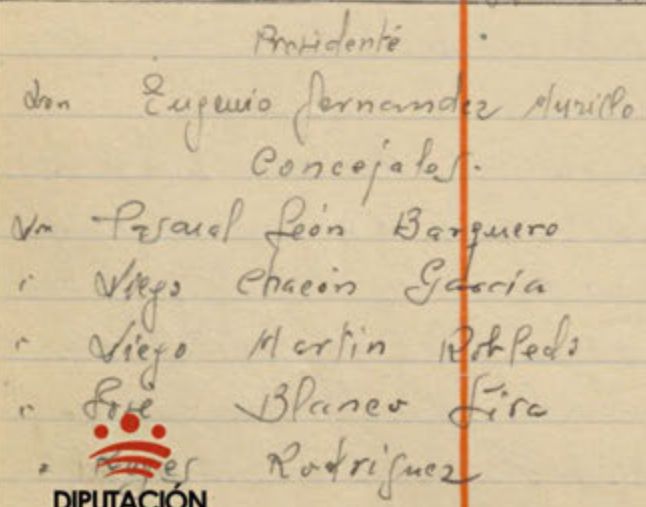 Presidente
don Eugenio Fernandez Murillo
Concejales.
Dn Pascual León Barquero
" Diego Chacón García
" Diego Martin Robledo
" José Blanco Lira
" Reyes Rodriguez
DIPUTACIÓN